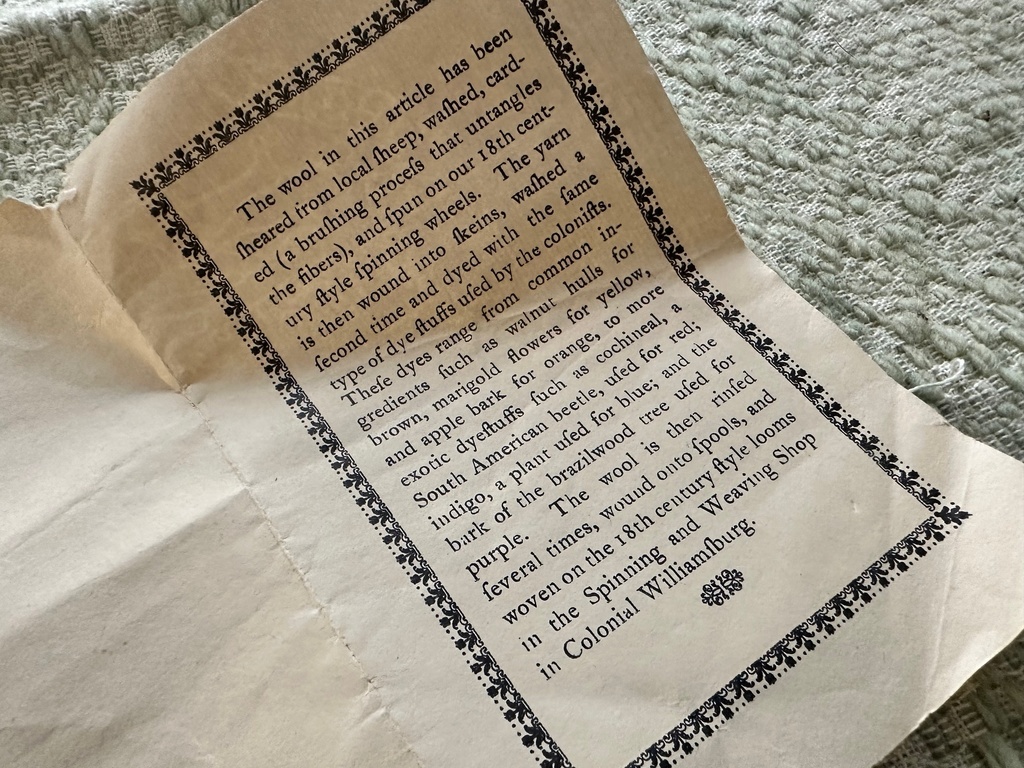 The wool in this article has been
ſheared from local ſheep, waſhed, card-
ed (a bruſhing proceſs that untangles
the fibers), and ſpun on our 18th cent-
ury ſtyle ſpinning wheels. The yarn
is then wound into ſkeins, waſhed a
ſecond time and dyed with the ſame
type of dyeſtuffs uſed by the coloniſts.
Theſe dyes range from common in-
gredients such as walnut hulls for
brown, marigold flowers for yellow,
and apple bark for orange, to more
exotic dyeſtuffs ſuch as cochineal, a
South American beetle, uſed for red;
indigo, a plant uſed for blue; and the
bark of the brazilwood tree uſed for
purple. The wool is then rinſed
ſeveral times, wound onto ſpools, and
woven on the 18th century ſtyle looms
in the Spinning and Weaving Shop
in Colonial Williamſburg.